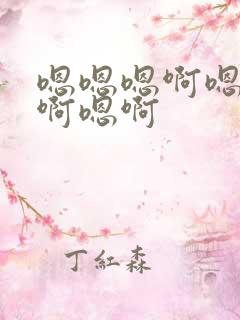 嗯嗯嗯啊嗯
啊嗯啊
丁紅森